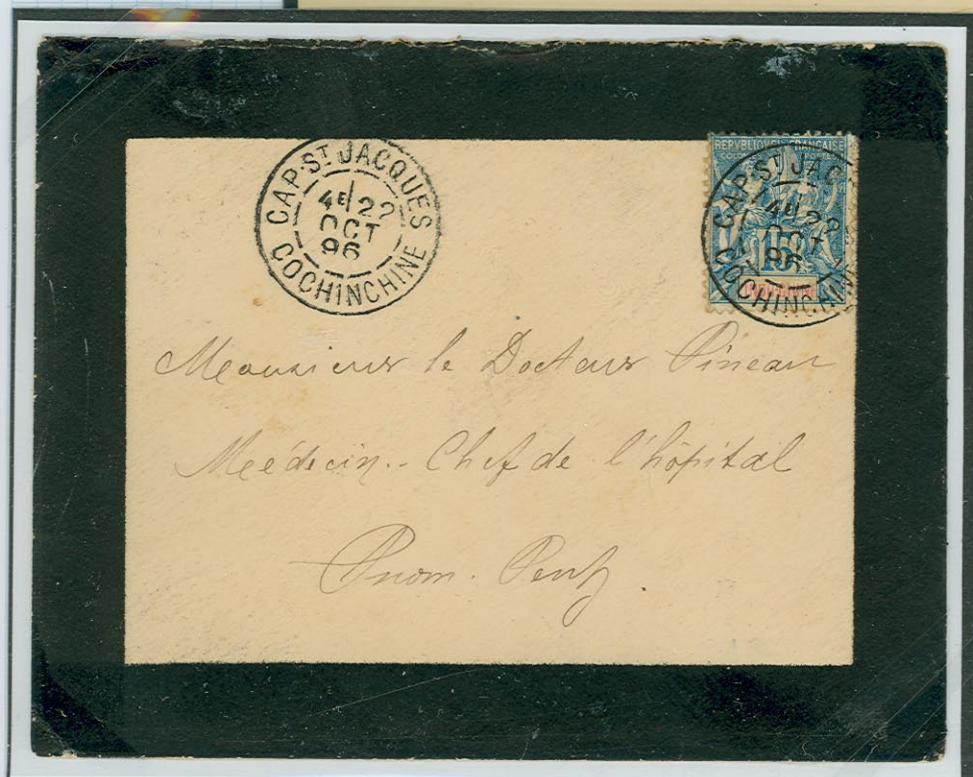 CAP-ST JACQUES
4E 22
OCT
96
COCHINCHINE
REPVBLIQVE FRANÇAISE
COLONIES POSTES
15
CAP-ST JAC
4E 22
OCT
96
COCHINCHIN
Monsieur le Docteur Pineau
Médecin-Chef de l'hôpital
Pnom-Penh.